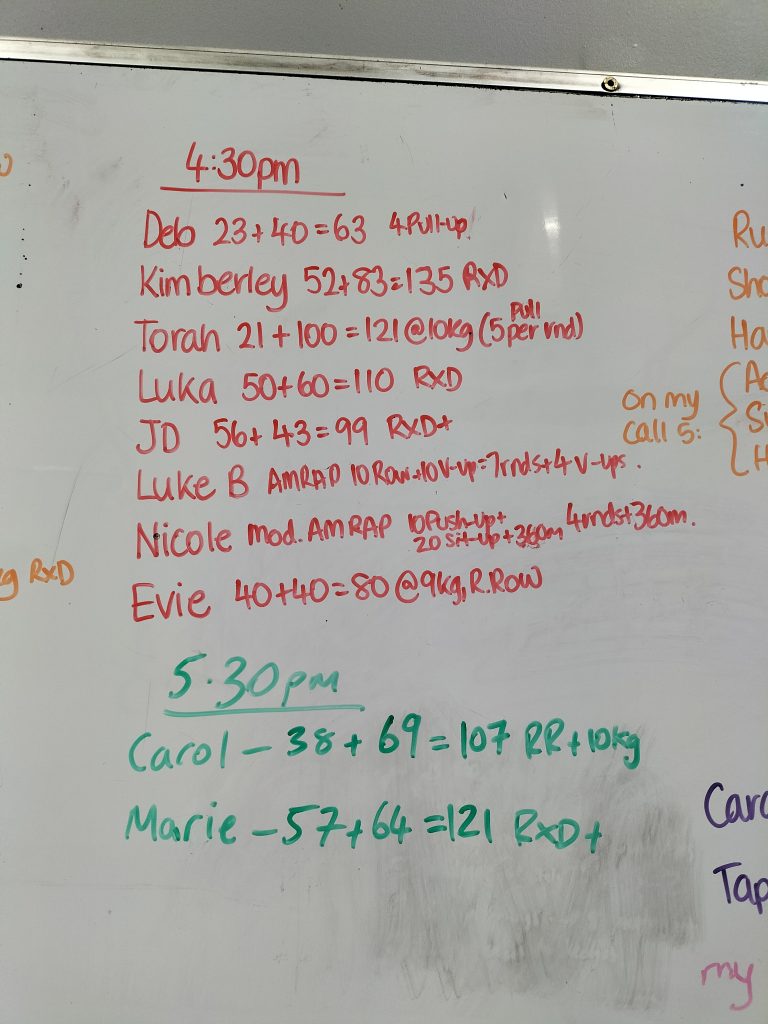 4:30pm
Deb 23+40=63 4 Pull-up
Kimberley 52+83=135 RXD
Torah 21+100=121@10kg (5 Pull per rnd)
Luka 50+60=110 RXD
JD 56+43=99 RXD+
Luke B AMRAP 10 Row+10V-up=7rnds+4 V-ups.
Nicole mod. AMRAP 10 Push-up+ 20 Sit-up+360m 4rnds+360m.
Evie 40+40=80@9kg, R.Row
5.30pm
Carol – 38+69=107 RR+10kg
Marie – 57+64=121 RXD+
kg RXD
on my
call 5:
my